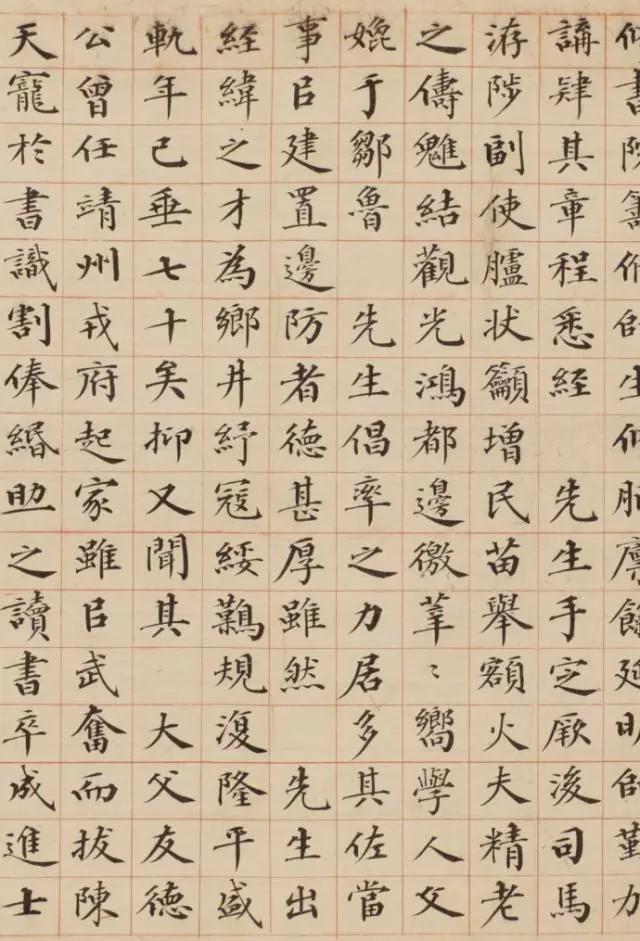 書院籌師生廩餼延明師勤力
講肄其章程悉經 先生手定厥後司馬
游陟副使臚狀籲增民苗舉額火夫精老
之儔魋結觀光鴻都邊徼莘〻嚮學人文
媲于鄒魯 先生倡率之力居多其佐當
事㠯建置邊防者德甚厚雖然 先生出
經緯之才為鄉井紓寇綏鷬規復隆平盛
軌年已垂七十矣抑又聞其 大父友德
公曾任靖州戎府起家雖㠯武奮而拔陳
天寵於書識割俸緡助之讀書卒成進士